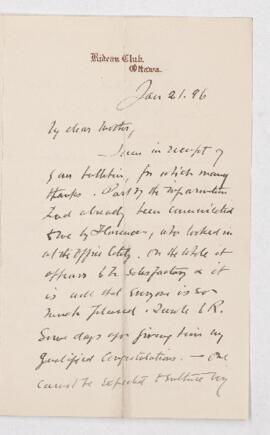 Rideau Club,
Ottawa.
Jan 21. 96
My dear Mother,
I am in receipt of
your bulletin, for which many
thanks. Part of the information
had already been communicated
to me by Florence, who looked in
at the Office lately. On the whole it
appears to be satisfactory & it
is well that everyone is so
much pleased. I wrote to R.
some days ago giving him my
qualified congratulations. — One
cannot be expected to